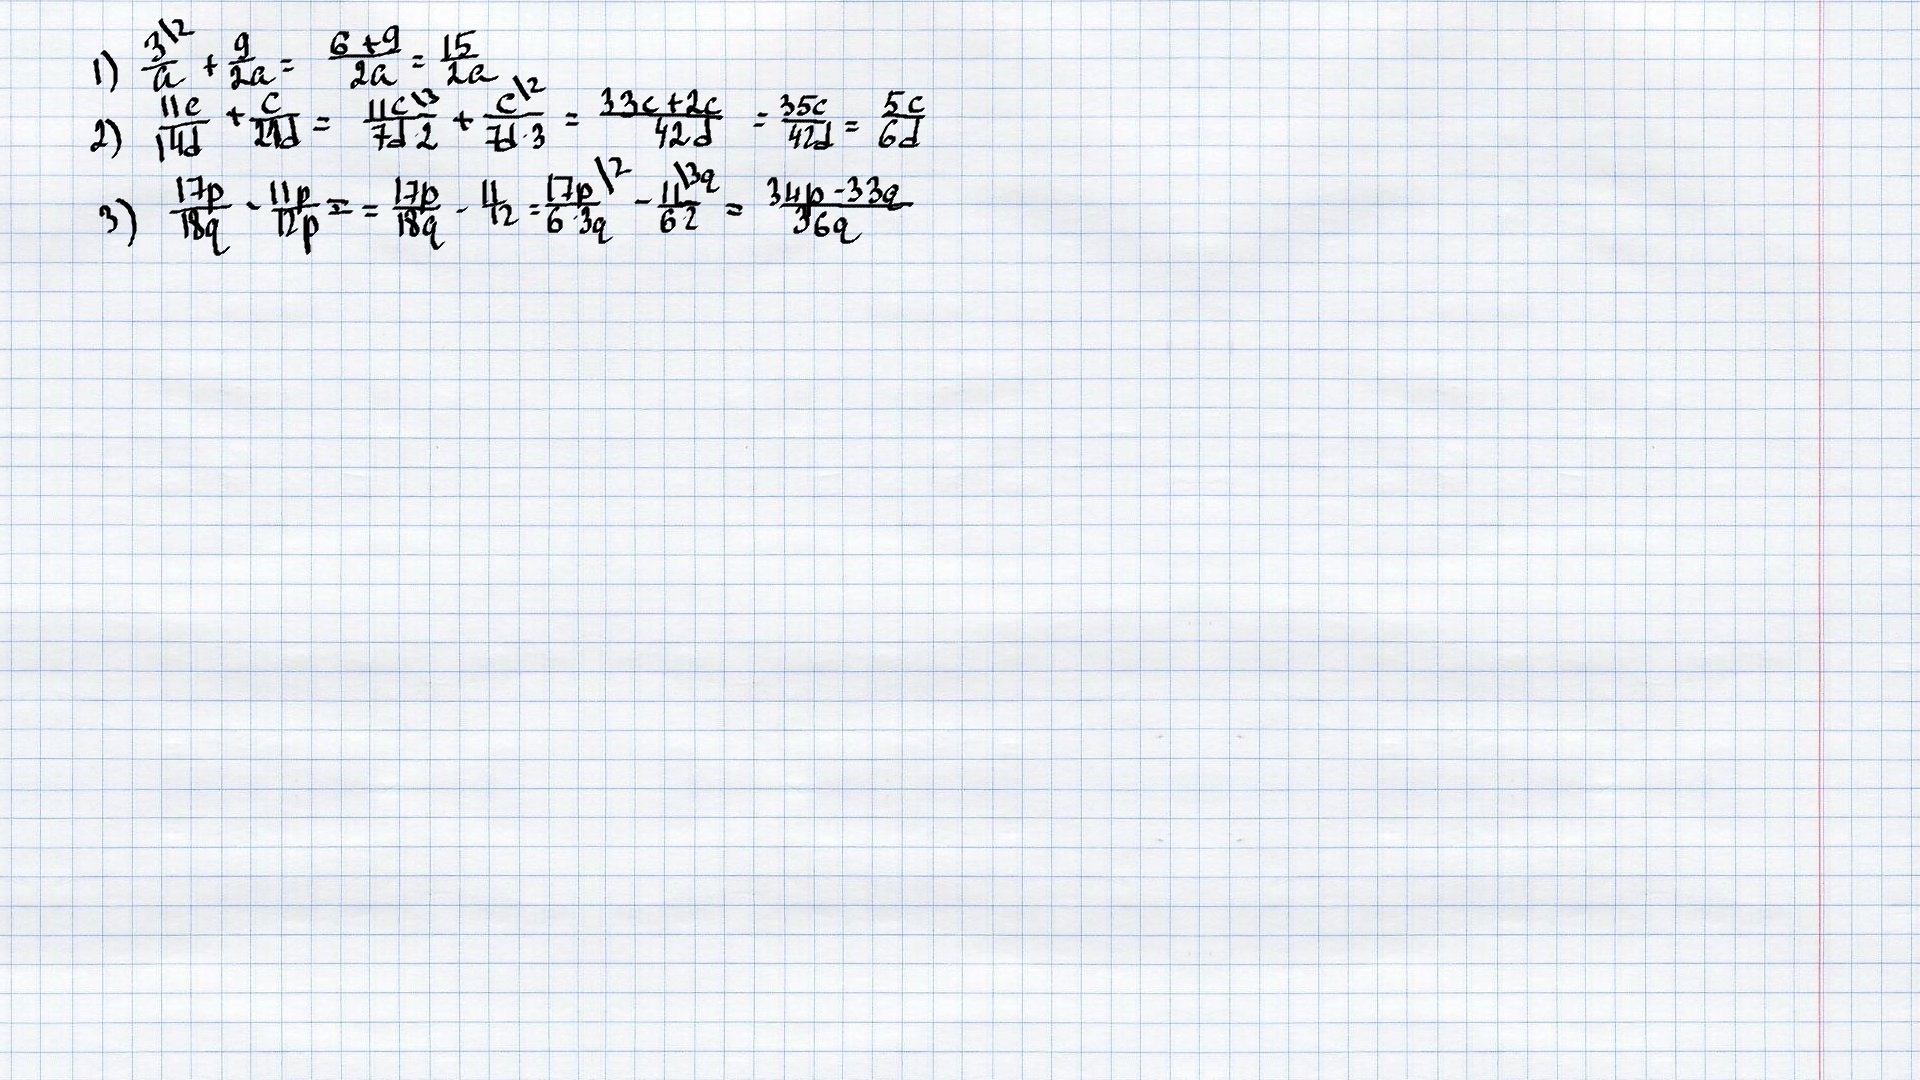 1) 3\2/a + 9/2a = 6+9/2a = 15/2a
2) 11c/14d + c/21d = 11c\3/7d·2 + c\2/7d·3 = 33c+2c/42d = 35c/42d = 5c/6d
3) 17p/18q - 11p/12p = = 17p/18q - 11/12 = 17p\2/6·3q - 11\3q/6·2 = 34p-33q/36q